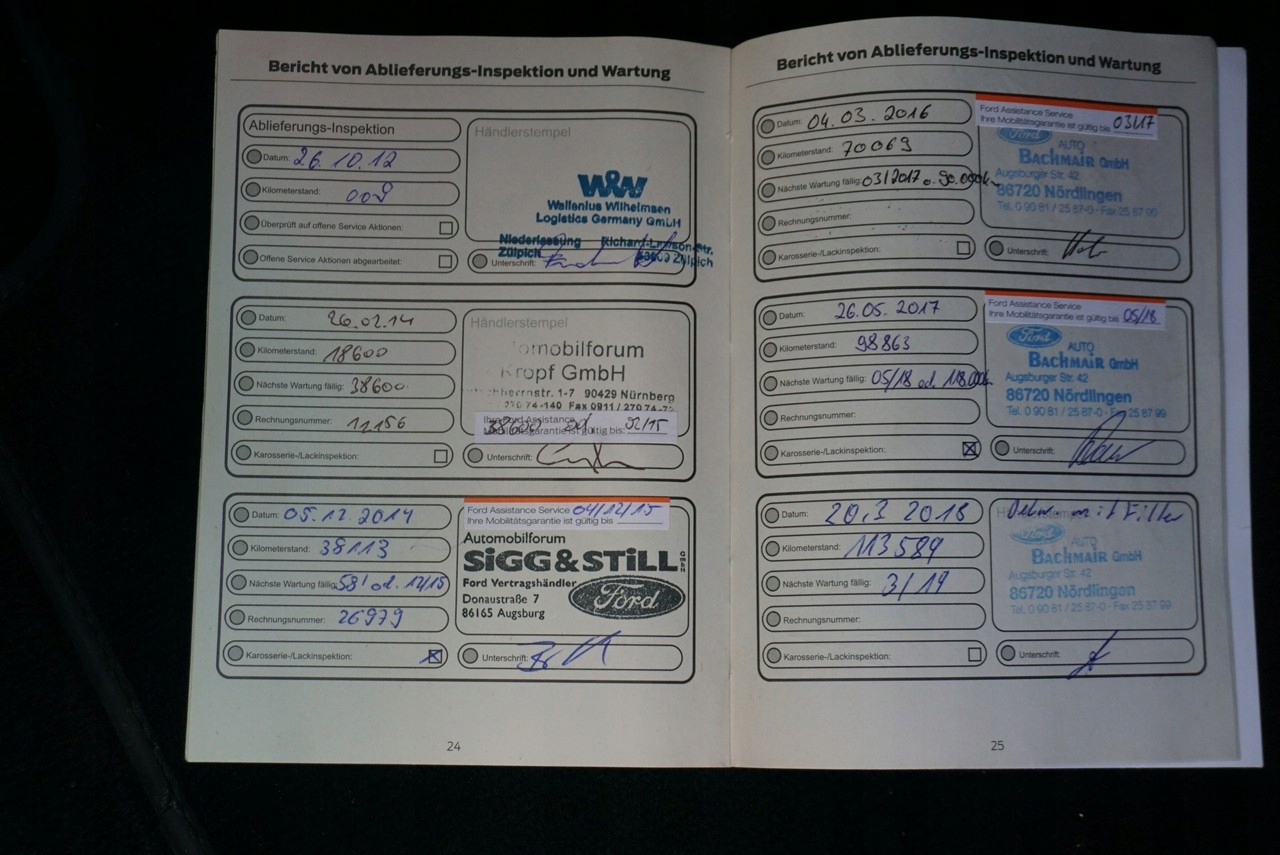 Bericht von Ablieferungs-Inspektion und Wartung
Ablieferungs-Inspektion
Datum: 26.10.12
Kilometerstand: 008
Überprüft auf offene Service Aktionen:
Offene Service Aktionen abgearbeitet:
Händlerstempel
W&W
Wallenius Wilhelmsen
Logistics Germany GmbH
Niederlassung Richard-Lawson-Str.
Zülpich 53909 Zülpich
Unterschrift:
Datum: 26.02.14
Kilometerstand: 18600
Nächste Wartung fällig: 38600
Rechnungsnummer: 11156
Karosserie-/Lackinspektion:
Händlerstempel
omobilforum
Kropf GmbH
1-7 90429 Nürnberg
270 74-140 Fax 0911 / 270 74-
Ihre Ford Assistance
Mobilitätsgarantie ist gültig bis: 02/15
Unterschrift:
Datum: 05.12.2014
Kilometerstand: 38113
Nächste Wartung fällig: 58' od. 12/15
Rechnungsnummer: 26979
Karosserie-/Lackinspektion:
Ford Assistance Service 04/12/15
Ihre Mobilitätsgarantie ist gültig bis
Automobilforum
SIGG & STILL GmbH
Ford Vertragshändler
Donaustraße 7
86165 Augsburg
Ford
Unterschrift:
24
Bericht von Ablieferungs-Inspektion und Wartung
Datum: 04.03.2016
Kilometerstand: 70069
Nächste Wartung fällig: 03/2017 o. 90.000k
Rechnungsnummer:
Karosserie-/Lackinspektion:
Ford Assistance Service
Ihre Mobilitätsgarantie ist gültig bis 03/17
Ford
AUTO
BACHMAIR GmbH
Augsburger Str. 42
86720 Nördlingen
Tel. 0 90 81 / 25 87-0 - Fax 25 87 99
Unterschrift:
Datum: 26.05.2017
Kilometerstand: 98863
Nächste Wartung fällig: 05/18 od. 118.000k
Rechnungsnummer:
Karosserie-/Lackinspektion:
Ford Assistance Service
Ihre Mobilitätsgarantie ist gültig bis 05/18
Ford
AUTO
BACHMAIR GmbH
Augsburger Str. 42
86720 Nördlingen
Tel. 0 90 81 / 25 87-0 - Fax 25 87 99
Unterschrift:
Datum: 20.3 2018
Kilometerstand: 113589
Nächste Wartung fällig: 3/19
Rechnungsnummer:
Karosserie-/Lackinspektion:
mit Filter
Ford
AUTO
BACHMAIR GmbH
Augsburger Str. 42
86720 Nördlingen
Tel. 0 90 81 / 25 87-0 - Fax 25 87 99
Unterschrift:
25